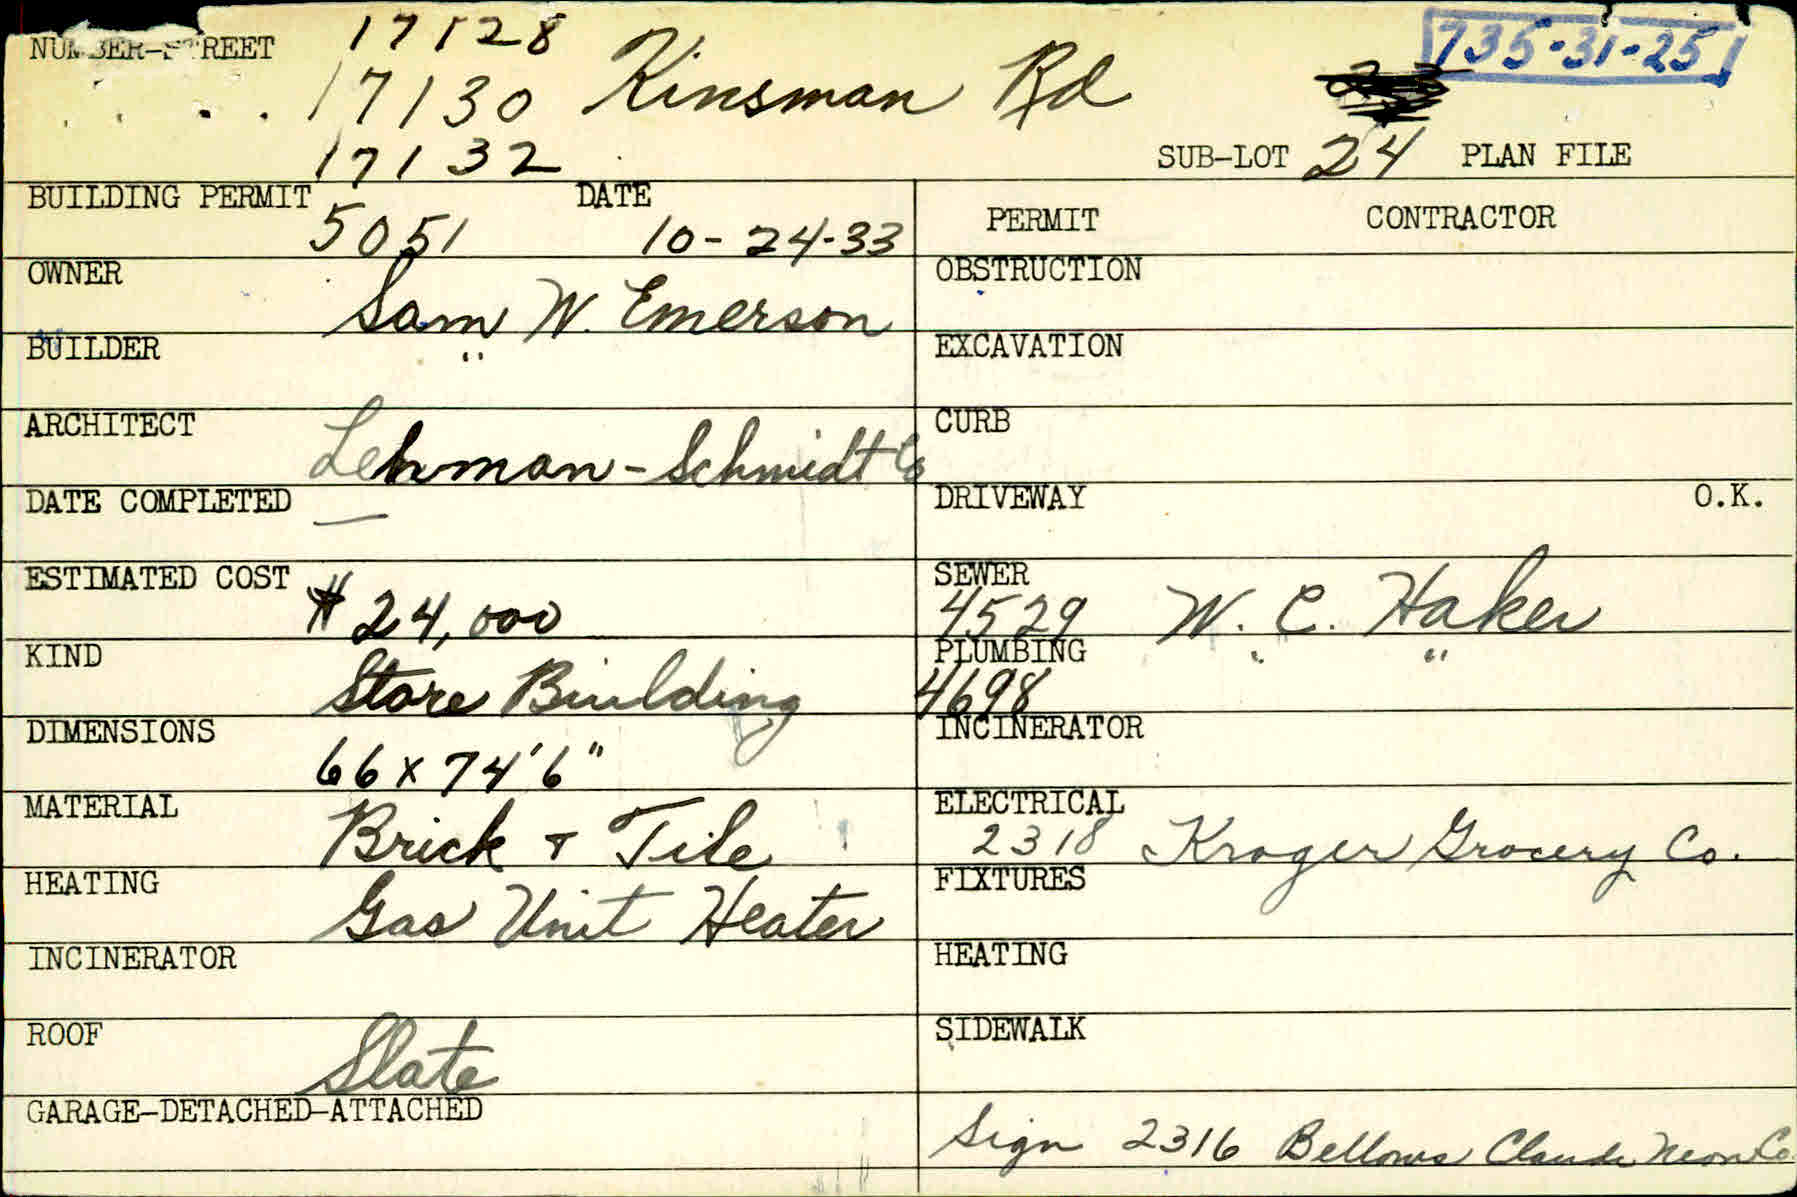 17128
NUMBER-STREET 17130 Kinsman Rd 735-31-25
17132 SUB-LOT 24 PLAN FILE
BUILDING PERMIT 5051 DATE 10-24-33
PERMIT CONTRACTOR
OWNER Sam W. Emerson
OBSTRUCTION
BUILDER "
EXCAVATION
ARCHITECT Lehman-Schmidt Co
CURB
DATE COMPLETED —
DRIVEWAY O.K.
ESTIMATED COST $24,000
SEWER
4529 W. C. Haker
KIND Store Building
PLUMBING " "
4698
DIMENSIONS 66 x 74'6"
INCINERATOR
MATERIAL Brick + Tile
ELECTRICAL
2318 Kroger Grocery Co.
HEATING Gas Unit Heater
FIXTURES
INCINERATOR
HEATING
ROOF Slate
SIDEWALK
GARAGE-DETACHED-ATTACHED
Sign 2316 Bellows Claude Neon Co.